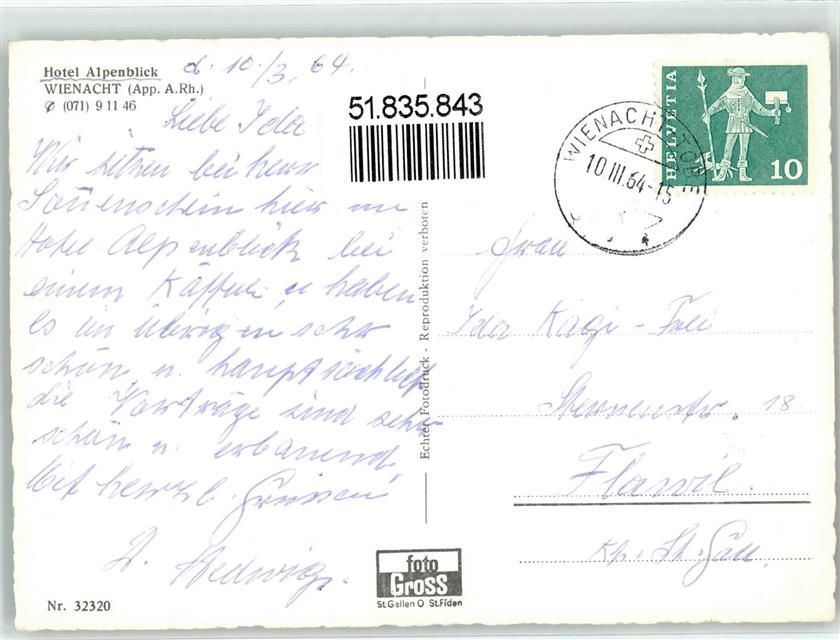 Hotel Alpenblick
WIENACHT (App. A.Rh.)
✆ (071) 9 11 46
d. 10./3. 64.
51.835.843
HELVETIA
10
WIENACHT
10.III.64-15
Liebe Ida
Wir sitzen bei herr
Sonnenschein hier im
Hotel Alpenblick bei
einem Kaffee u. haben
es im übrigen sehr
schön u. hauptsächlich
die Vorträge sind sehr
schön u. erbauend.
Mit herzl. Grüssen
Hedwig.
Echter Fotodruck - Reproduktion verboten
Frau
Ida Kägi-Frei
Sternenstr. 18
Flawil.
Kt. St. Gall.
foto
Gross
St.Gallen O St.Fiden
Nr. 32320